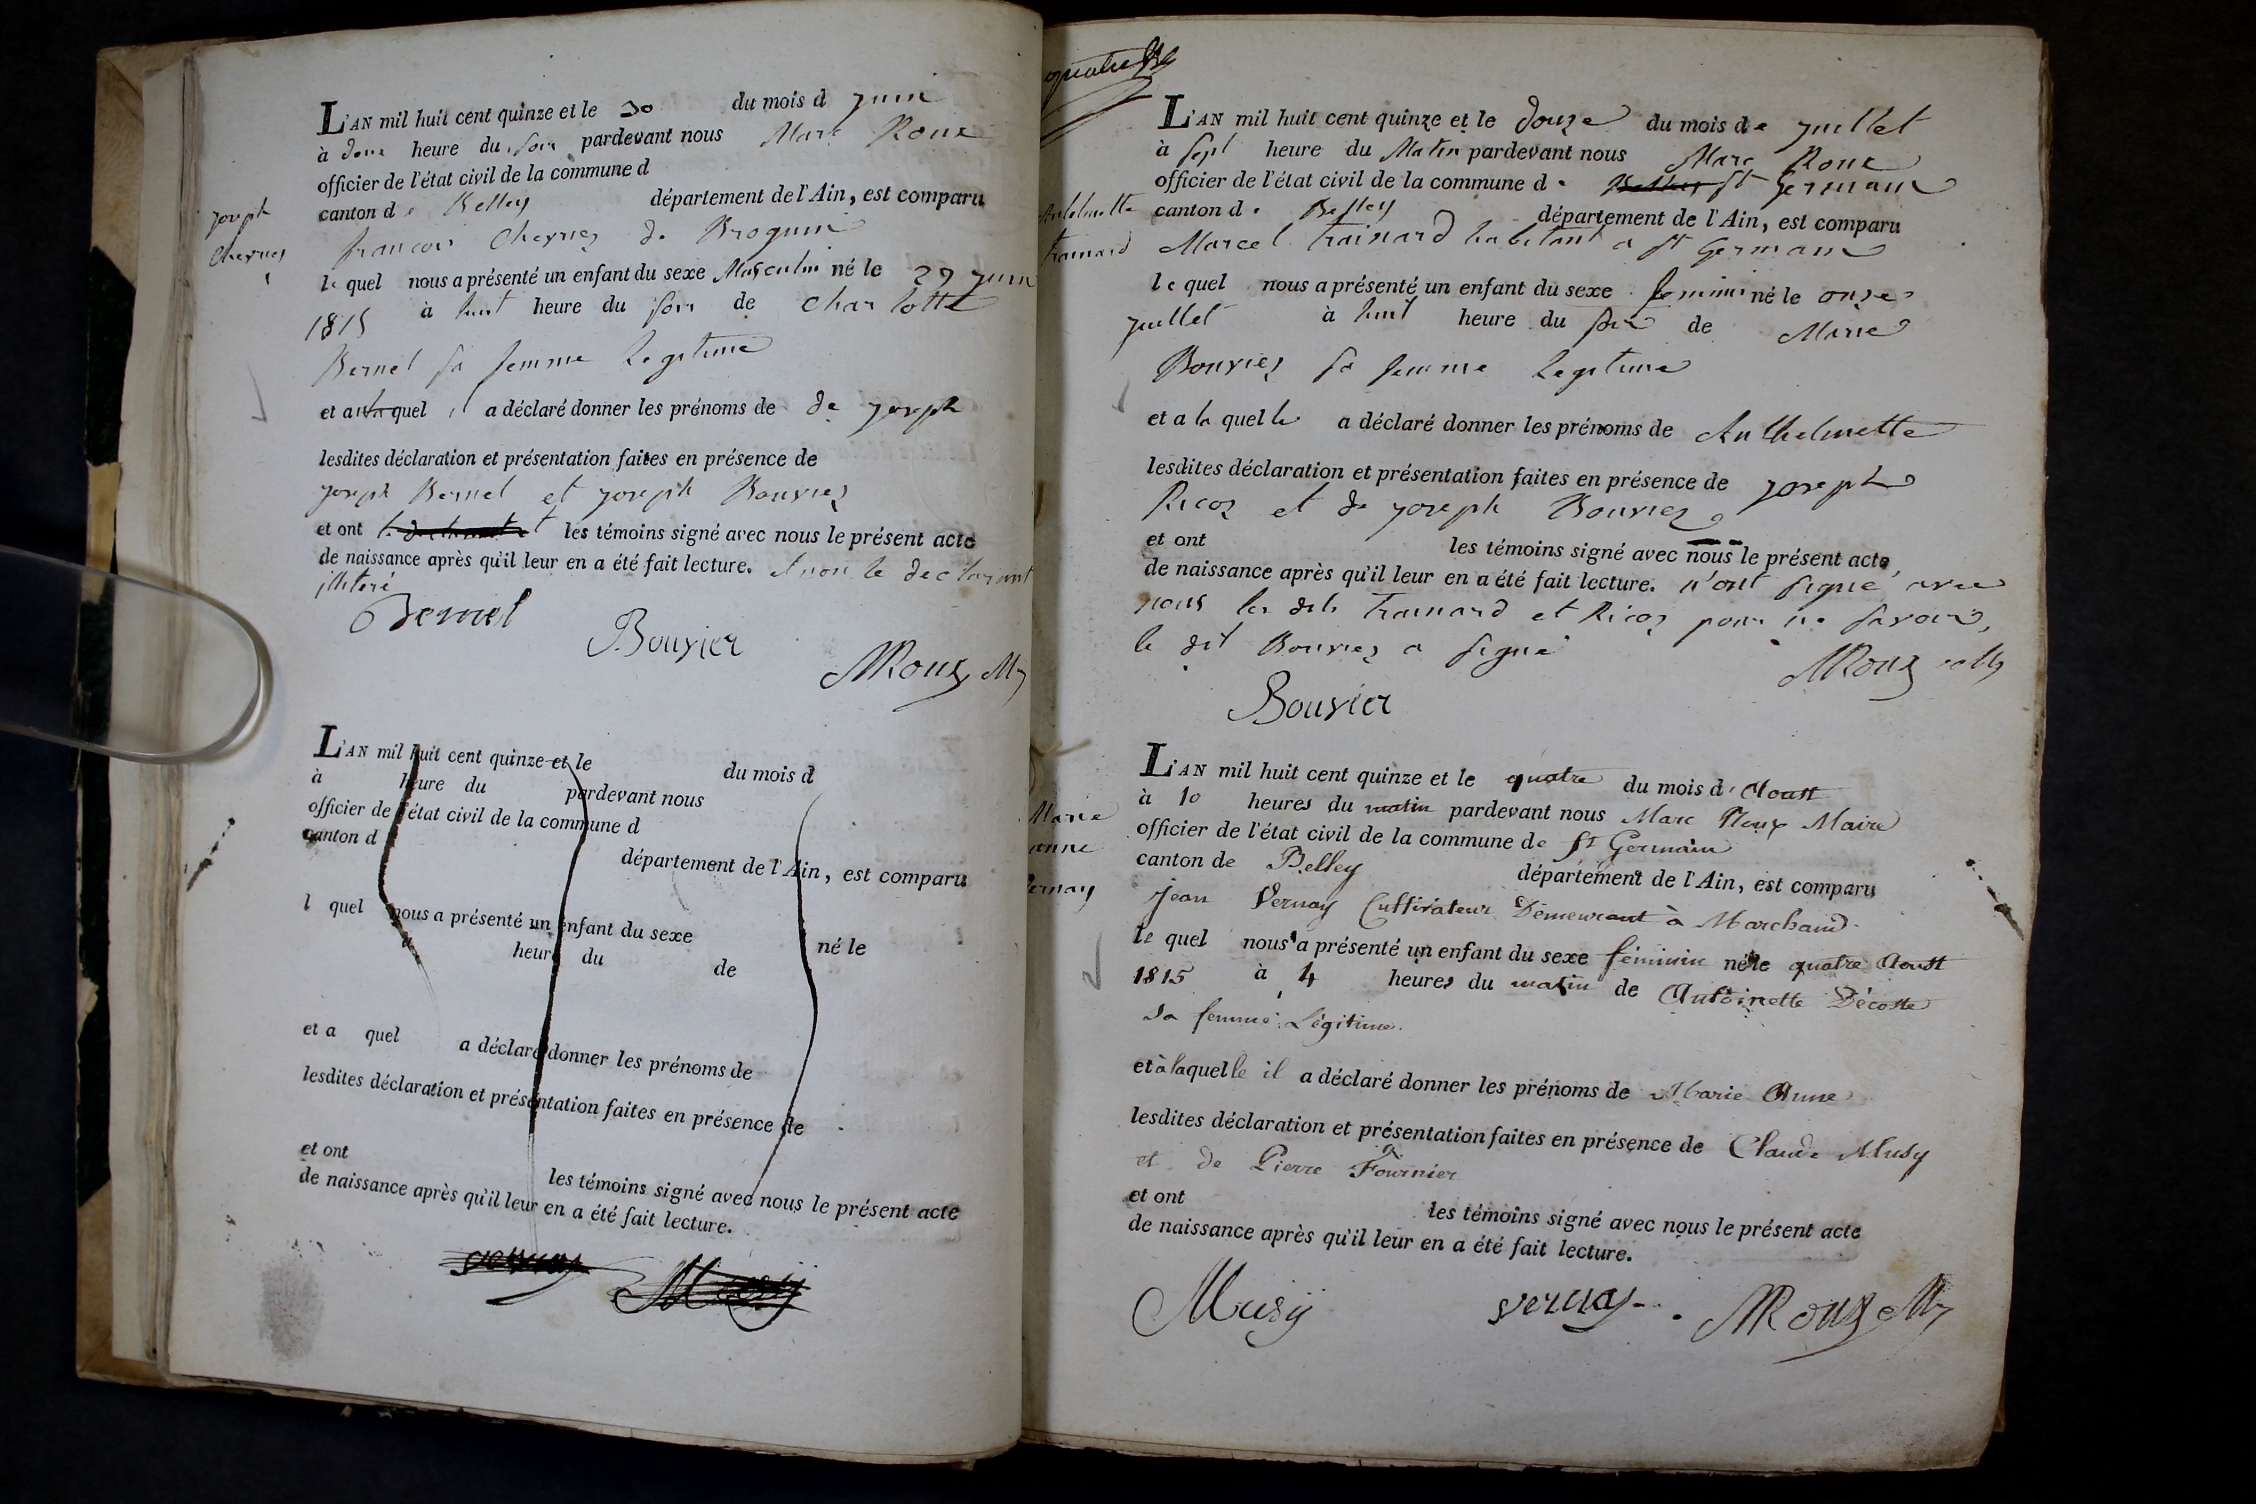 L'AN mil huit cent quinze et le 30 du mois d juin
à heure du soir pardevant nous Marc Roux
officier de l'état civil de la commune d
canton de Belley département de l'Ain, est comparu
joseph
francois de Brognin
le quel nous a présenté un enfant du sexe Masculin né le 29 juin
1815 à huit heure du soir de Charlotte
Bernel sa femme legitime
et a quel il a déclaré donner les prénoms de de joseph
lesdites déclaration et présentation faites en présence de
joseph Bernel et joseph Bouvier
et ont les témoins signé avec nous le présent acte
de naissance après qu'il leur en a été fait lecture. et non le declarant
illiteré
Bernel
Bouvier
MRoux
L'AN mil huit cent quinze et le du mois d
à heure du pardevant nous
officier de l'état civil de la commune d
canton d
département de l'Ain, est comparu
l quel nous a présenté un enfant du sexe né le
heure du de
et a quel a déclaré donner les prénoms de
lesdites déclaration et présentation faites en présence de
et ont les témoins signé avec nous le présent acte
de naissance après qu'il leur en a été fait lecture.
vernay Musy
L'AN mil huit cent quinze et le douze du mois de juillet
à sept heure du Matin pardevant nous Marc Roux
officier de l'état civil de la commune de st Germain
Anthelmette
trainard
canton de Belley département de l'Ain, est comparu
Marcel trainard habitant a st Germain
le quel nous a présenté un enfant du sexe feminin né le onze
juillet à huit heure du soir de Marie
Bouvier sa femme legitime
et a la quelle a déclaré donner les prénoms de Anthelmette
lesdites déclaration et présentation faites en présence de joseph
Ricoz et de joseph Bouvier
et ont les témoins signé avec nous le présent acte
de naissance après qu'il leur en a été fait lecture. n'ont signé avec
nous les dits trainard et Ricoz pour ne savoir,
le dit Bouvier a signé
MRoux
Bouvier
L'AN mil huit cent quinze et le quatre du mois d'Aoust
à 10 heures du matin pardevant nous Marc Roux Maire
Marie
anne
vernay
officier de l'état civil de la commune de St Germain
canton de Belley département de l'Ain, est comparu
Jean Vernay Cultivateur Demeurant à Marchand
le quel nous a présenté un enfant du sexe féminin né le quatre Aoust
1815 à 4 heures du matin de Antoinette Décoste
sa femme Légitime.
et à laquelle il a déclaré donner les prénoms de Marie Anne
lesdites déclaration et présentation faites en présence de Claude Musy
et de Pierre Fournier
et ont les témoins signé avec nous le présent acte
de naissance après qu'il leur en a été fait lecture.
Musy vernay MRoux